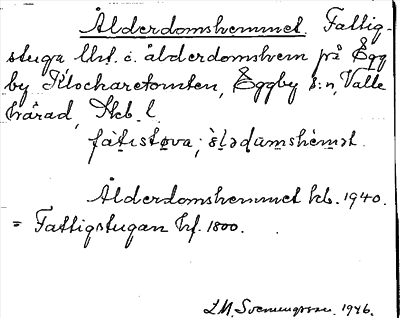 Ålderdomshemmet. Fattig-
stuga lht. i. ålderdomshem på Egg
by Klocharetomten, Eggby s:n, Valle
härad, Skb. l.
fàtistøva;
Ålderdomshemmet kb. 1940.
= Fattigstugan hf. 1800.
L.M. Svenungsson. 1946.